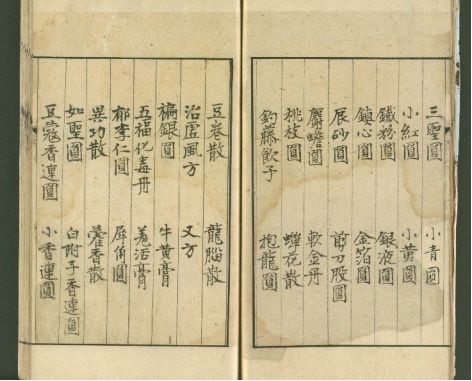 三聖圓　小青圓
小紅圓　小黃圓
鐵粉圓　銀液圓
鎮心圓　金箔圓
辰砂圓　剪刀股圓
麝蟾圓　軟金丹
桃枝圓　蟬花散
釣藤飲子　抱龍圓
豆卷散　龍腦散
治虛風方　又方
褊銀圓　牛黃膏
五福化毒丹　羗活膏
郁李仁圓　犀角圓
異功散　藿香散
如聖圓　白附子香連圓
豆蔻香連圓　小香連圓